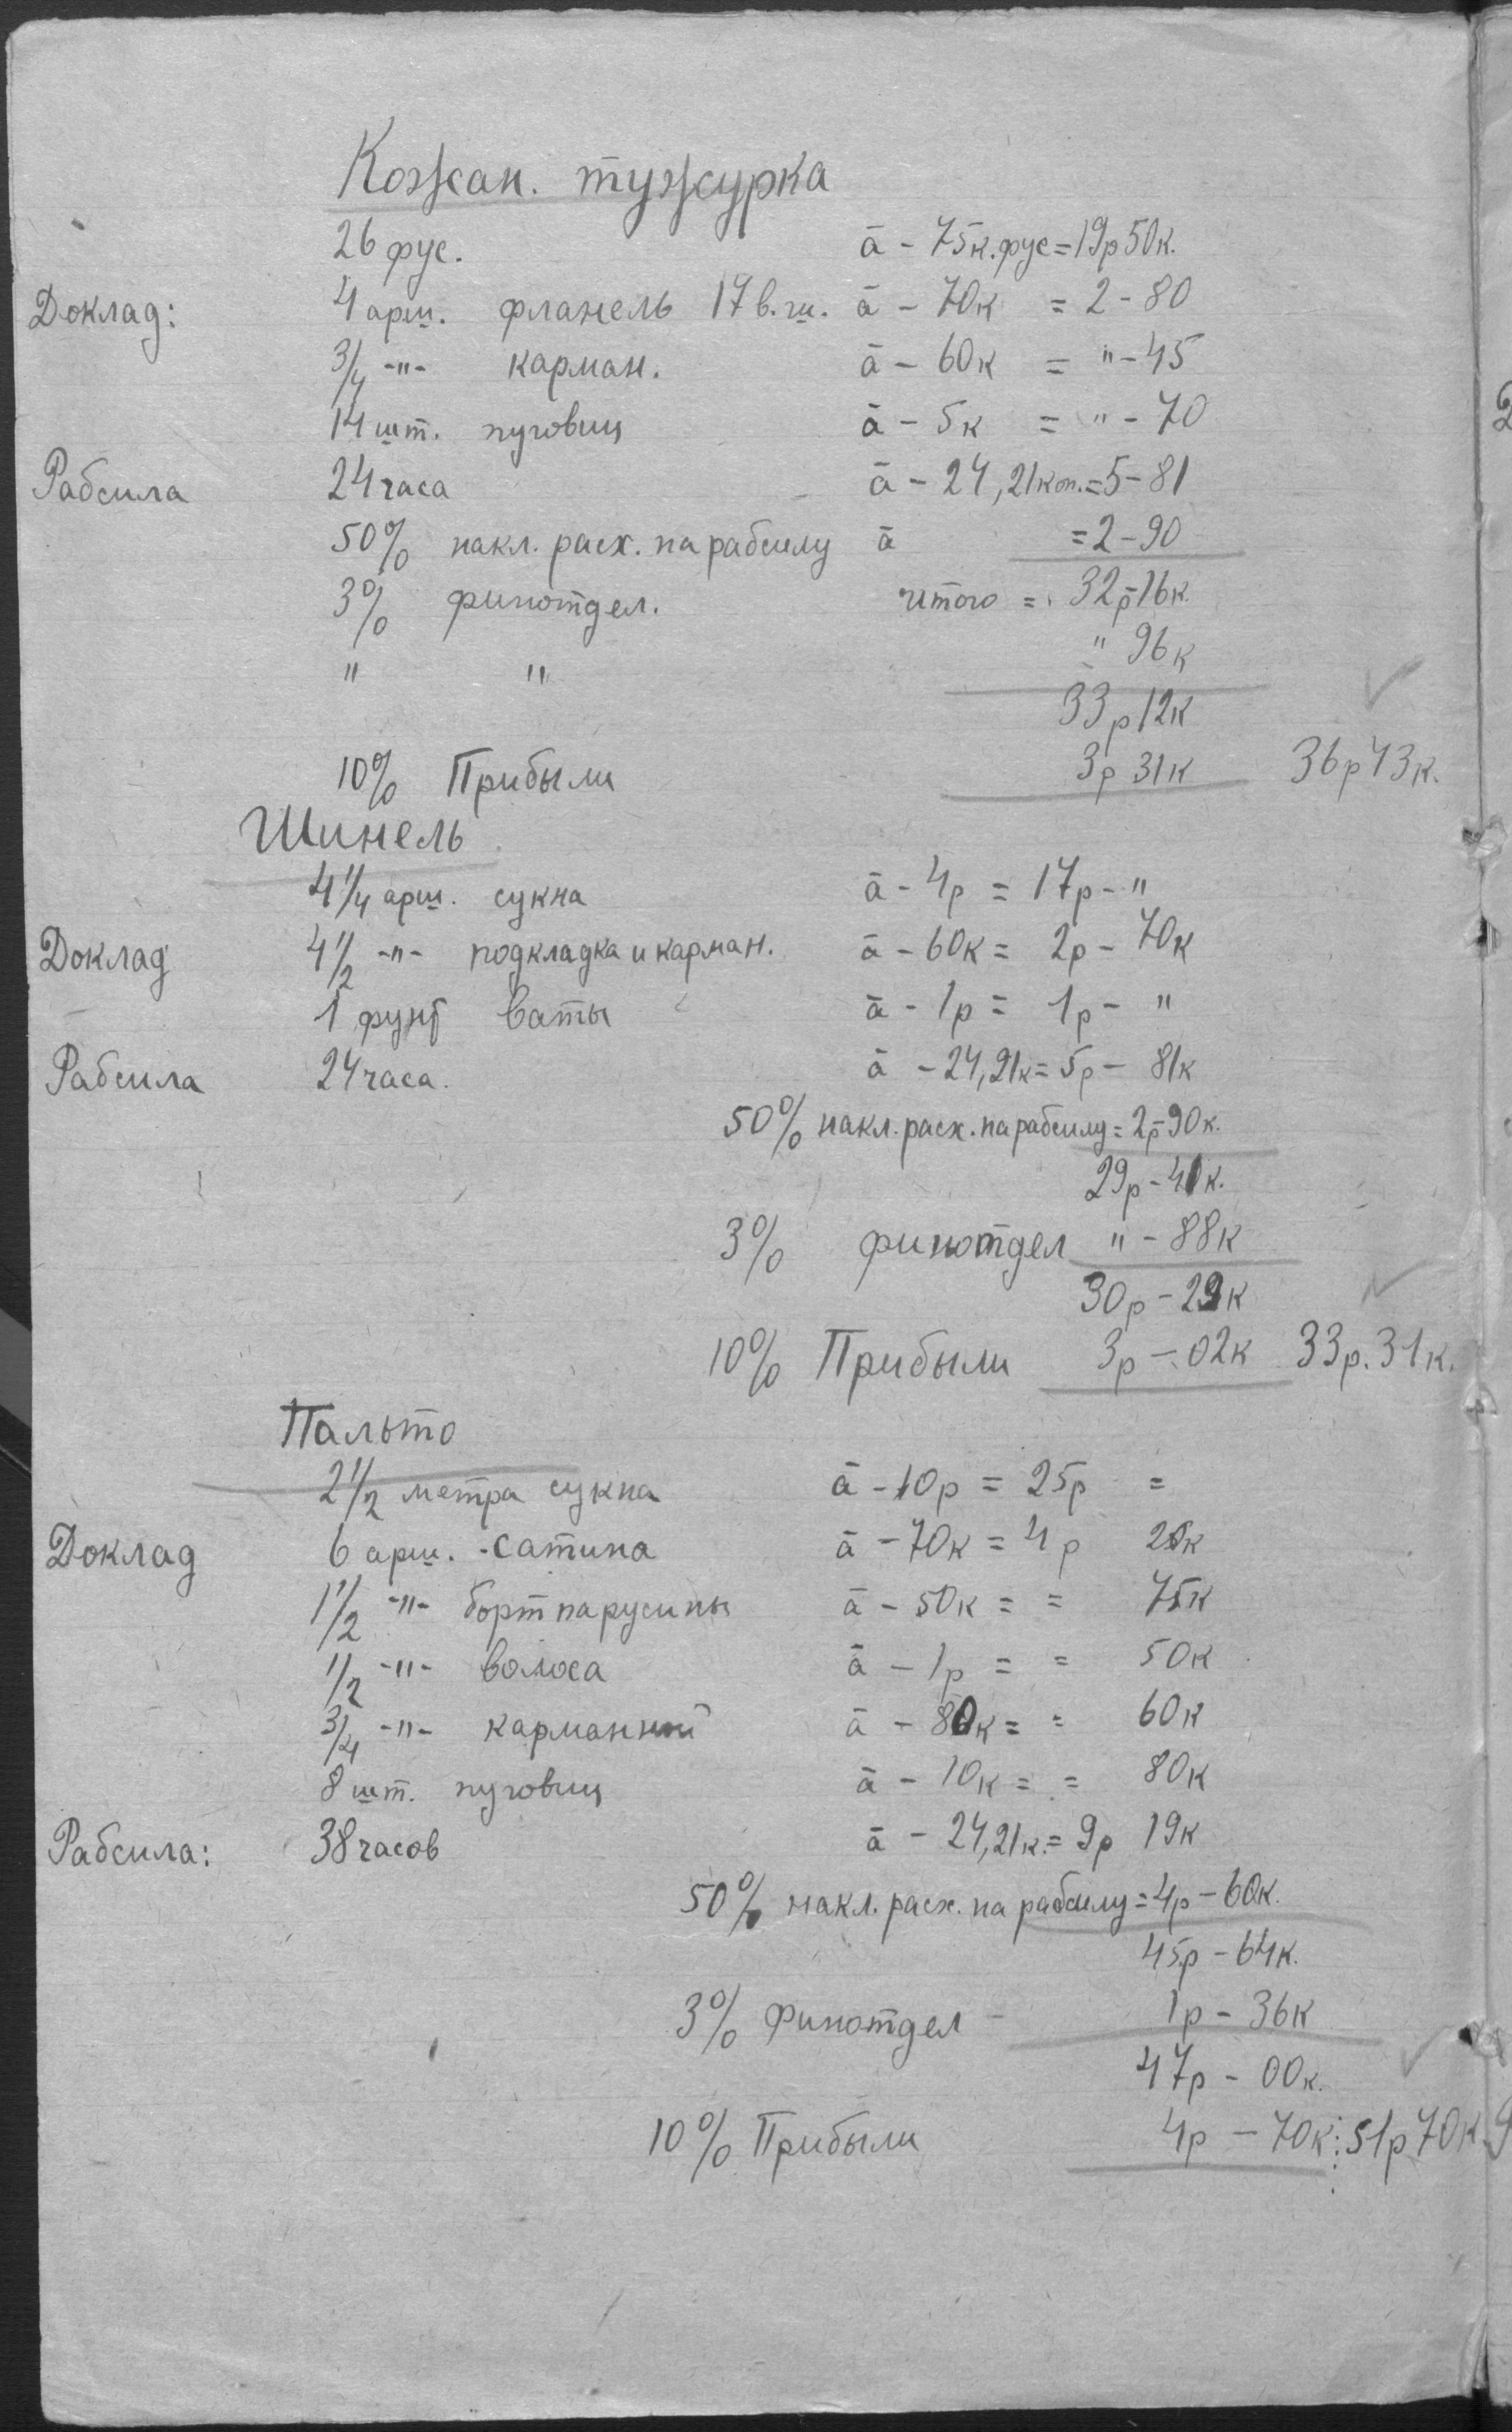 Кожан. тужурка
26 фус. à - 75к. фус = 19р 50к.
Доклад: 4 арш. фланель 17 в. ш. à - 70к = 2 - 80
3/4 -"- карман. à - 60к = " - 45
14 шт. пуговиц à - 5к = " - 70
Рабсила 24 часа à - 24,21 коп. = 5 - 81
50% накл. расх. на рабсилу à = 2 - 90
3% финотдел. итого = 32р - 16к.
" " " 96к
33р 12к
10% Прибыли 3р 31к 36р 43к.
Шинель
4 1/4 арш. сукна à - 4р = 17р - "
Доклад 4 1/2 -"- подкладка и карман. à - 60к = 2р - 70к
1 фунт ваты à - 1р = 1р - "
Рабсила 24 часа. à - 24,21к = 5р - 81к
50% накл. расх. на рабсилу = 2р - 90к.
29р - 41к.
3% финотдел " - 88к
30р - 29к
10% Прибыли 3р - 02к 33р. 31к.
Пальто
2 1/2 метра сукна à - 10р = 25р =
Доклад 6 арш. - сатина à - 70к = 4р 20к
1 1/2 -"- борт парусины à - 50к = = 75к
1/2 -"- волоса à - 1р = = 50к
3/4 -"- карманный à - 80к = = 60к
8 шт. пуговиц à - 10к = = 80к
Рабсила: 38 часов à - 24,21к. = 9р 19к
50% накл. расх. на рабсилу = 4р - 60к.
45р - 64к.
3% Финотдел - 1р - 36к
47р - 00к.
10% Прибыли 4р - 70к: 51р 70к